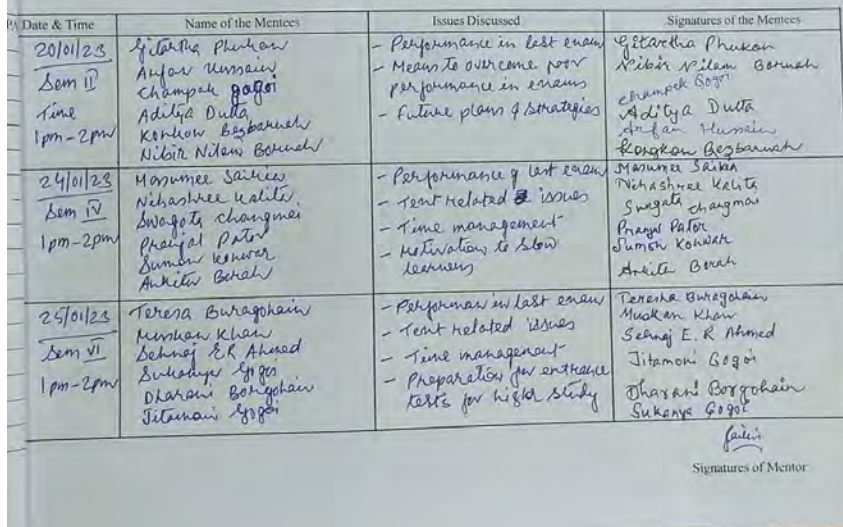 Date & Time Name of the Mentees Issues Discussed Signatures of the Mentees
20/01/23
Sem II
Time
1pm - 2pm
Gitartha Phukon
Arfan Hussain
Champak gogoi
Aditya Dutta
Konkon Bezbaruah
Nibir Nilam Boruah
- Performance in last exam
- Means to overcome poor
performance in exams
- Future plans & strategies
Gitartha Phukon
Nibir Nilam Boruah
Champak Gogoi
Aditya Dutta
Arfan Hussain
Kongkon Bezbaruah
24/01/23
Sem IV
1pm - 2pm
Masumee Saikia
Nihashree Kalita
Swagata Changmai
Pranjal Pator
Sumon Konwar
Ankita Borah
- Performance of last exam
- Tent related issues
- Time management
- Motivation to slow
learners
Masumee Saikia
Nihashree Kalita
Swgata Changmai
Pranjal Pator
Sumon Konwar
Ankita Borah
25/01/23
Sem VI
1pm - 2pm
Teresa Buragohain
Muskan Khan
Sehnaj ER Ahmed
Sukanya Gogoi
Dharani Borgohain
Jitamoni Gogoi
- Performan in last exam
- Tent related issues
- Time management
- Preparation for entrance
tests for higher study
Teresha Buragohain
Muskan Khan
Sehnaj E. R Ahmed
Jitamoni Gogoi
Dharani Borgohain
Sukanya Gogoi
Signatures of Mentor